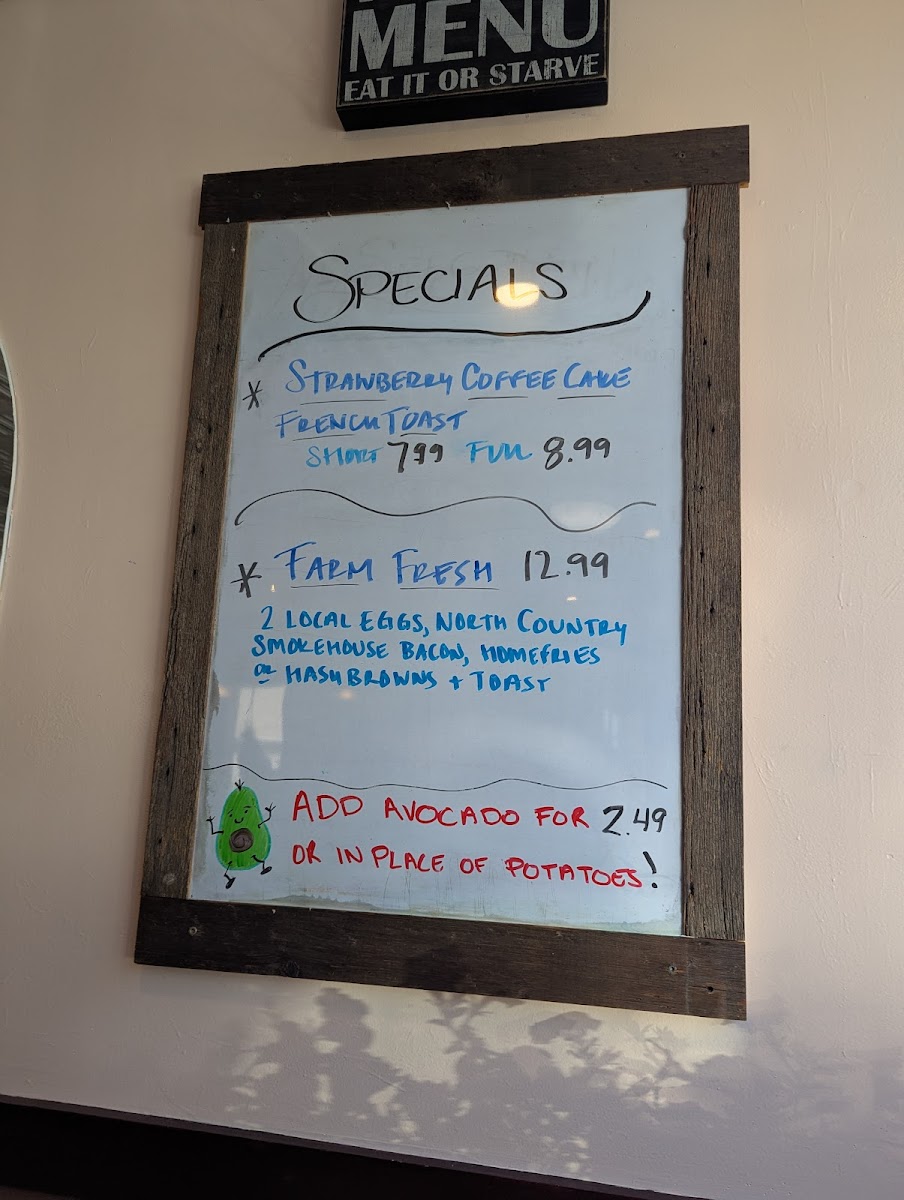 MENU
EAT IT OR STARVE
SPECIALS
* STRAWBERRY COFFEE CAKE
FRENCH TOAST
SHORT 7.99 FULL 8.99
* FARM FRESH 12.99
2 LOCAL EGGS, NORTH COUNTRY
SMOKEHOUSE BACON, HOMEFRIES
OR HASHBROWNS + TOAST
ADD AVOCADO FOR 2.49
OR IN PLACE OF POTATOES!